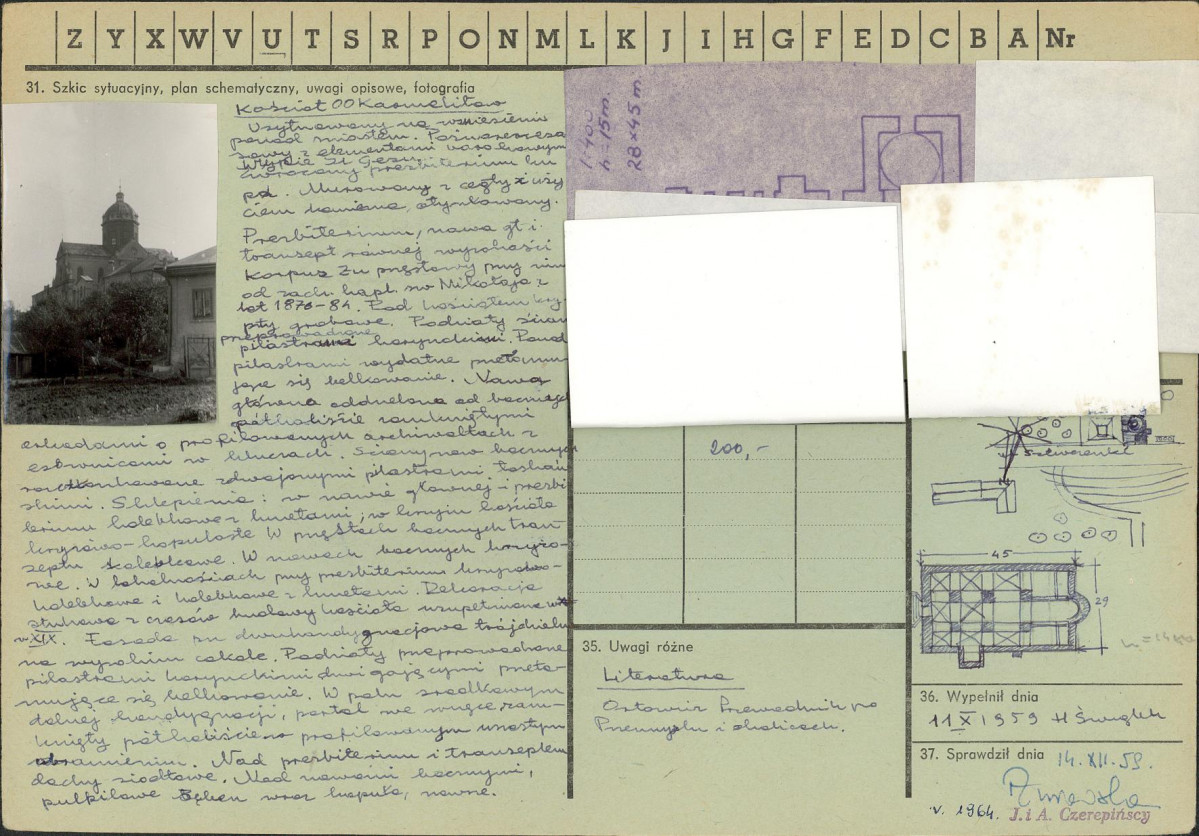 Z Y X W V U T S R P O N M L K J I H G F E D C B A Nr
31. Szkic sytuacyjny, plan schematyczny, uwagi opisowe, fotografia
Kościół OO Karmelitów
Usytuowany na wzniesieniu
ponad miastem.
z elementami barokowymi
w typie Il Gesu
zwrócony prezbiterium ku
pd. Murowany z cegły z uży
ciem kamienia, otynkowany.
Prezbiterium, nawa gł. i
transept równej wysokości
Korpus przy nim
od zach. kapl. św Mikołaja z
lat 1876-84. Pod kościołem kry-
pty grobowe. Podziały ścian
przeprowadzone
pilastrami korynckimi. Ponad
pilastrami wydatne przełamu-
jące się belkowanie. Nawa
główna oddzielona od bocznych
półkoliście zamkniętymi
arkadami o profilowanych archiwoltach z
w kluczach. Ściany naw bocznych
zdwojonymi pilastrami toskań
skimi. Sklepienia: w nawie głównej i prezbi
terium kolebkowe z lunetami, w krzyżu kościoła
krzyżowo-kopulaste W przęsłach bocznych tran-
septu kolebkowe. W nawach bocznych krzyżo-
we. W lokalnościach przy prezbiterium krzyżowo-
kolebkowe i kolebkowe z lunetami. Dekoracja
stiukowa z czasów budowy kościoła uzupełniona w
w XIX. Fasada dwukondygnacjowa trójdzielna
na wysokim cokole. Podziały przeprowadzone
pilastrami korynckimi dwigającymi przeła-
mujące się belkowanie. W polu środkowym
dolnej kondygnacji, portal we wnęce zam-
knięty półkoliście o profilowanym
obramieniu. Nad prezbiterium i transeptem
dachy siodłowe. Nad nawami bocznymi,
pulpitowe Bęben wraz kopułą, nowsze.
1:400
h = 15 m.
28 x 45 m
200,-
45
29
35. Uwagi różne
Literatura
Orłowicz Przewodnik po
Przemyślu i okolicach.
36. Wypełnił dnia
11 X 1959
37. Sprawdził dnia 14. XII. 59.
v. 1964. J. i A. Czerepińscy